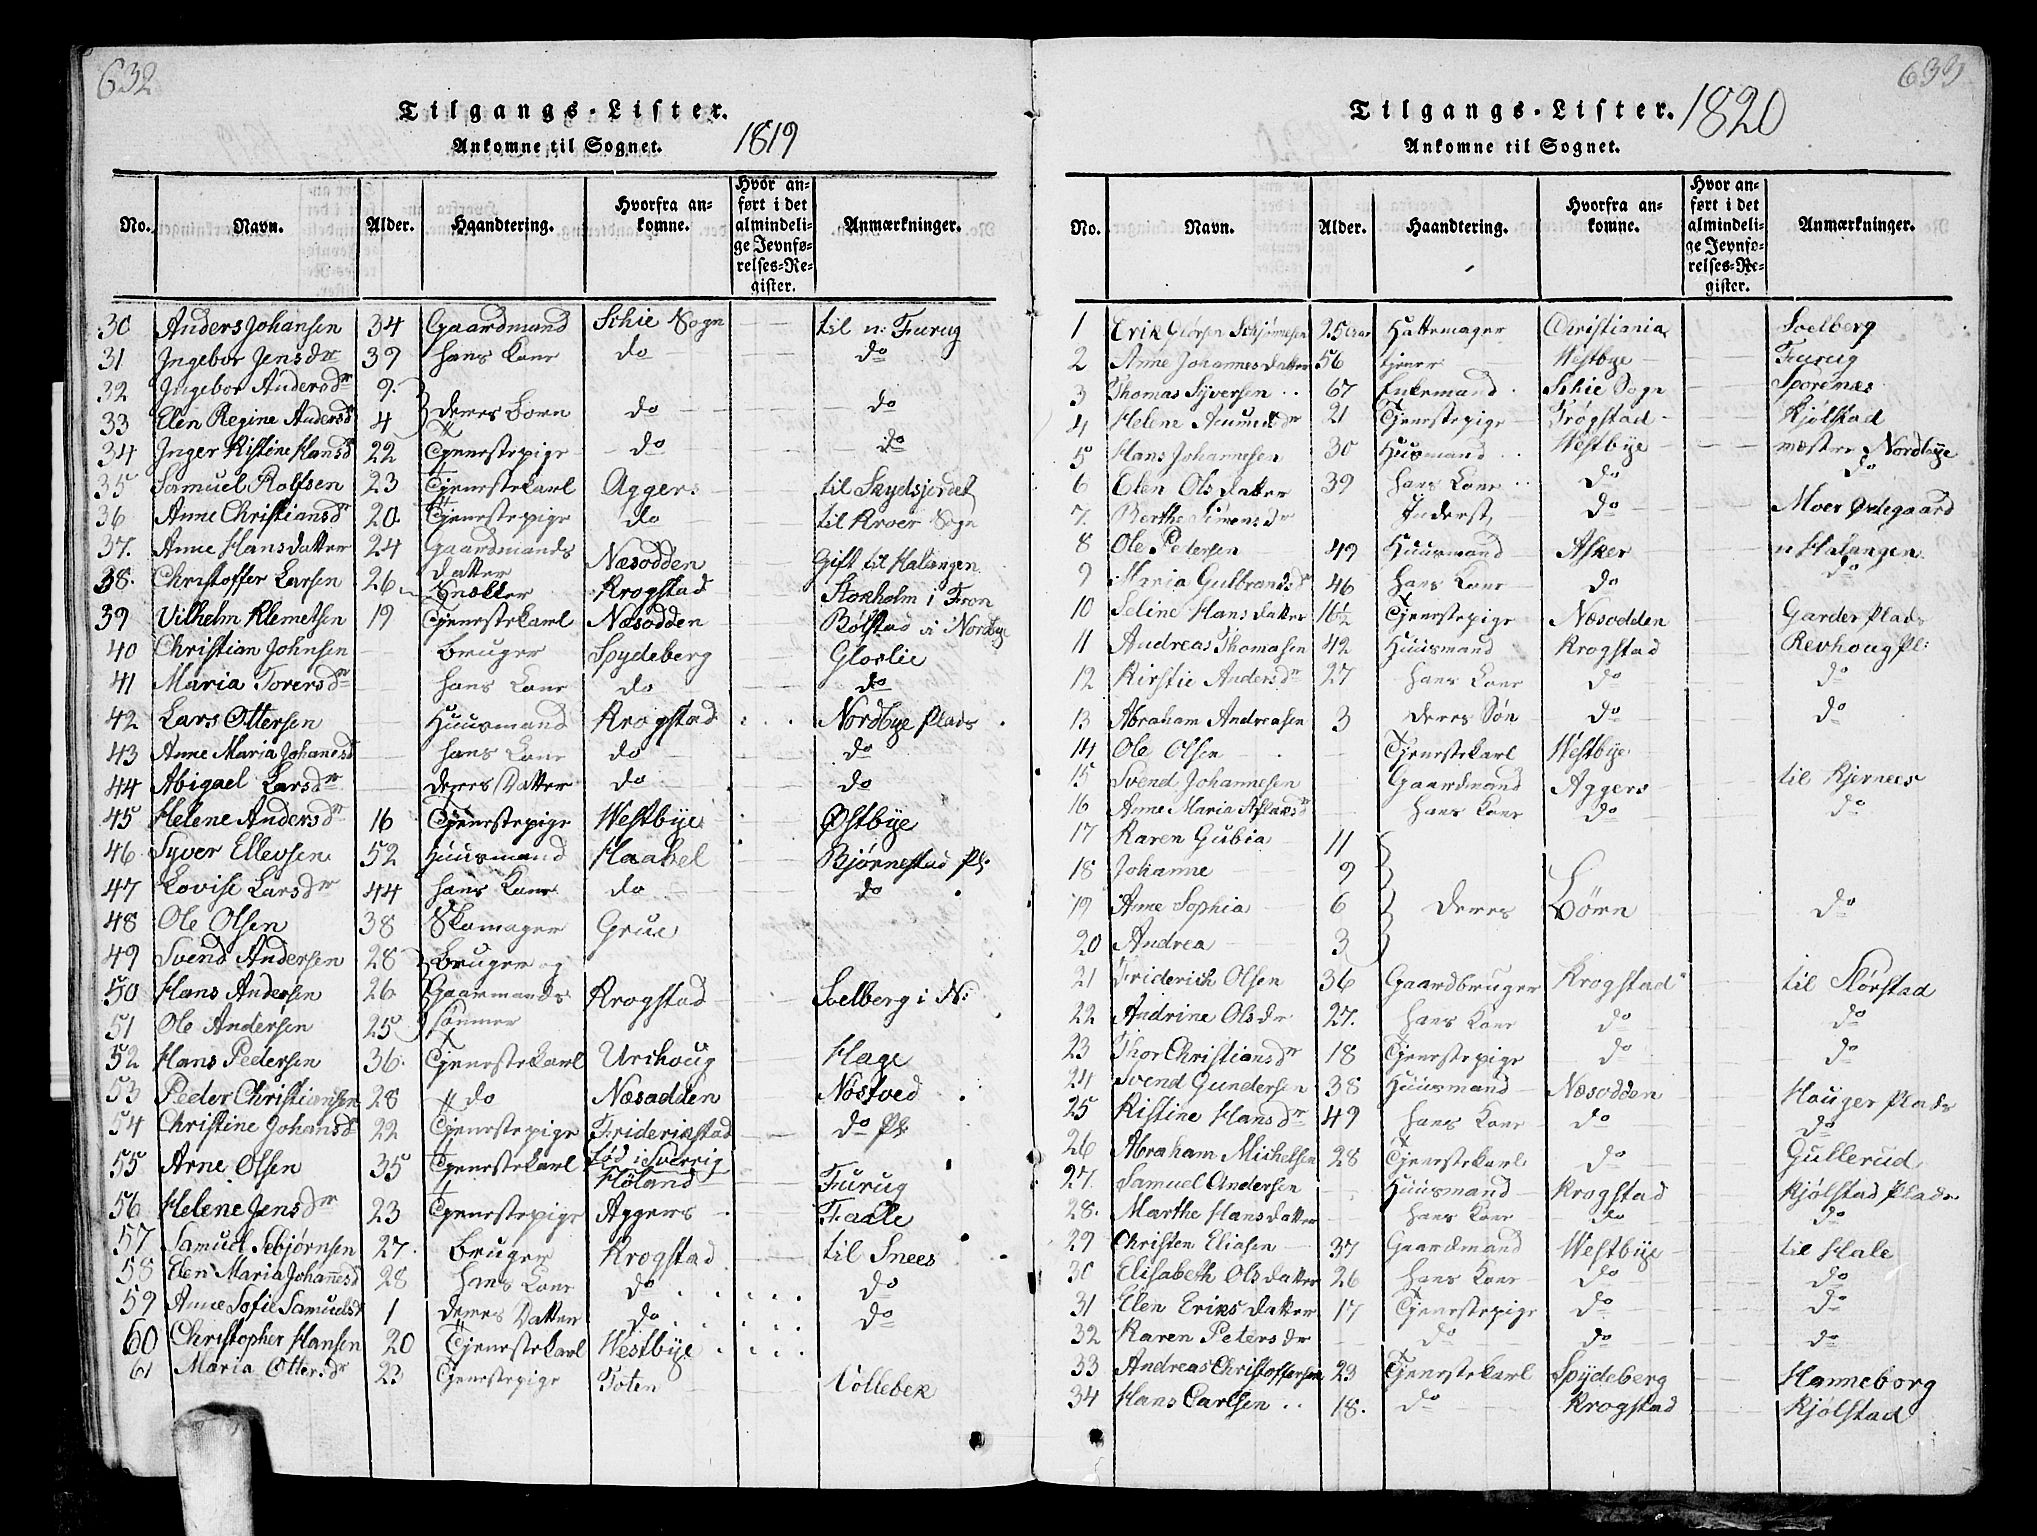 632
Tilgangs-Lister.
Ankomne til Sognet. 1819
No. Navn. Alder. Haandtering. Hvorfra ankomne. Hvor anført i det almindelige Jevnførelses-Register. Anmærkninger.
30 Anders Johansen 34 Gaardmand Schie Sogn til n: Furug
31 Ingebor Jensdr 39 hans Kone do do
32 Ingebor Andersdr 9.
33 Elen Regine Andersd 4 deres Born do do
34 Inger Kistine Hansd 22 Tjenestepige do do
35 Samuel Rolfsen 23 Tjenestekarl Aggers til Skydsjordet
36 Anne Christiansdr 20 Tjenestepige do til Kroer Sogn
37. Anne Hansdatter 24 Gaardmands Datter Næsodden Gift til Halangen
38. Christoffer Larsen 26 Snækker Krogstad Stokholm i Fron
39 Vilhelm Klemetsen 19 Tjenestekarl Næsodden Bølstad i Nordbye
40 Christian Johnsen Bruger Spydeberg Gloslie
41 Maria Torersdr hans Kone do do
42 Lars Ottersen Huusmand Krogstad Nordbye Plads
43 Anne Maria Johanesd hans Kone do do
44 Abigael Larsdr deres Datter do do
45 Helene Andersdr 16 Tjenestepige Westbye Østbye
46 Syver Ellevsen 52 Huusmand Haabel Bjørnestad Pl:
47 Lovise Larsdr 44 hans Kone do do
48 Ole Olsen 38 Skomager Grue
49 Svend Andersen 28 Bruger og
50 Hans Andersen 26 Gaarmands Krogstad Solberg i N:
51 Ole Andersen 25 sønner
52 Hans Pedersen 36. Tjenestekarl Urshoug Hage
53 Peder Christiansen 28 do Næsodden Nøstved
54 Christine Johansd 22 Tjenestepige Friderikstad do Pl
55 Arne Olsen 35 Tjenestekarl fød i Sverrig Høland Furug
56 Helene Jensdr 23 Tjenestepige Aggers Faale
57 Samuel Sebjørnsen 27. Bruger Krogstad til Snees
58 Elen Maria Johannesd 28 hans Kone do do
59 Anne Sofie Samuelsd 1 deres Datter do do
60 Christopher Hansen 20 Tjenestekarl Westbye
61 Maria Ottersdr 23 Tjenestepige Toten Vollebek
633
Tilgangs-Lister. 1820
Ankomne til Sognet.
No. Navn. Alder. Haandtering. Hvorfra ankomne. Hvor anført i det almindelige Jevnførelses-Register. Anmærkninger.
1 Erik 25 Aar Hattemager Christiania Soelberg
2 Anne Johannesdatter 56 tjener Westbye Furug
3 Thomas Syversen 67 Enkemand Schie Sogn Sporenæs
4 Helene 21 Tjenestepige Trøgstad Kjølstad
5 Hans Johannesen 30 Huusmand Westbye mæstere Nordbye
6 Elen Olsdatter 39 hans Kone do do
7. Berthe Simensdr Inderst do Moer Ødegaard
8 Ole Petersen 49 Huusmand Asker n Halangen
9 Maria Gulbrandsdr 46 hans Kone do do
10 Seline Hansdatter 16½ Tjenestepige Næsodden Garder Plads
11 Andreas Thomasen 42 Huusmand Krogstad Revhoug Pl:
12 Kirstie Andersdr 27 hans Kone do do
13 Abraham Andreasen 3 deres Søn do do
14 Ole Olsen Tjenestekarl Westbye
15 Svend Johannesen Gaardmand Aggers til Kjernees
16 Anne Maria Aslaksdr hans Kone do do
17 Karen Gubia 11
18 Johanne 9
19 Anne Sophia 6 deres Børn do
20 Andrea 3
21 Friderich Olsen 36 Gaardbruger Krogstad til Størstad
22 Andrine Olsdr 27. hans Kone do do
23 Thor Christiansdr 18 Tjenestepige do do
24 Svend Gundersen 38 Huusmand Næsodden Hauger Plads
25 Kistine Hansdr 49 hans Kone do do
26 Abraham Michelsen 28 Tjenestekarl do Gullerud
27. Samuel Andersen Huusmand Krogstad Kjølstad Plads
28. Marthe Hansdatter hans Kone do do
29 Christen Eliasen 37 Gaardmand Westbye til Hale
30 Elisabeth Olsdatter 26 hans Kone do do
31 Elen Eriksdatter 17 Tjenestepige do do
32 Karen Petersdr do do do
33 Andreas Christoffersen 23 Tjenestekarl Spydeberg Hanneborg
34 Hans Carlsen 18. do Krogstad Kjølstad